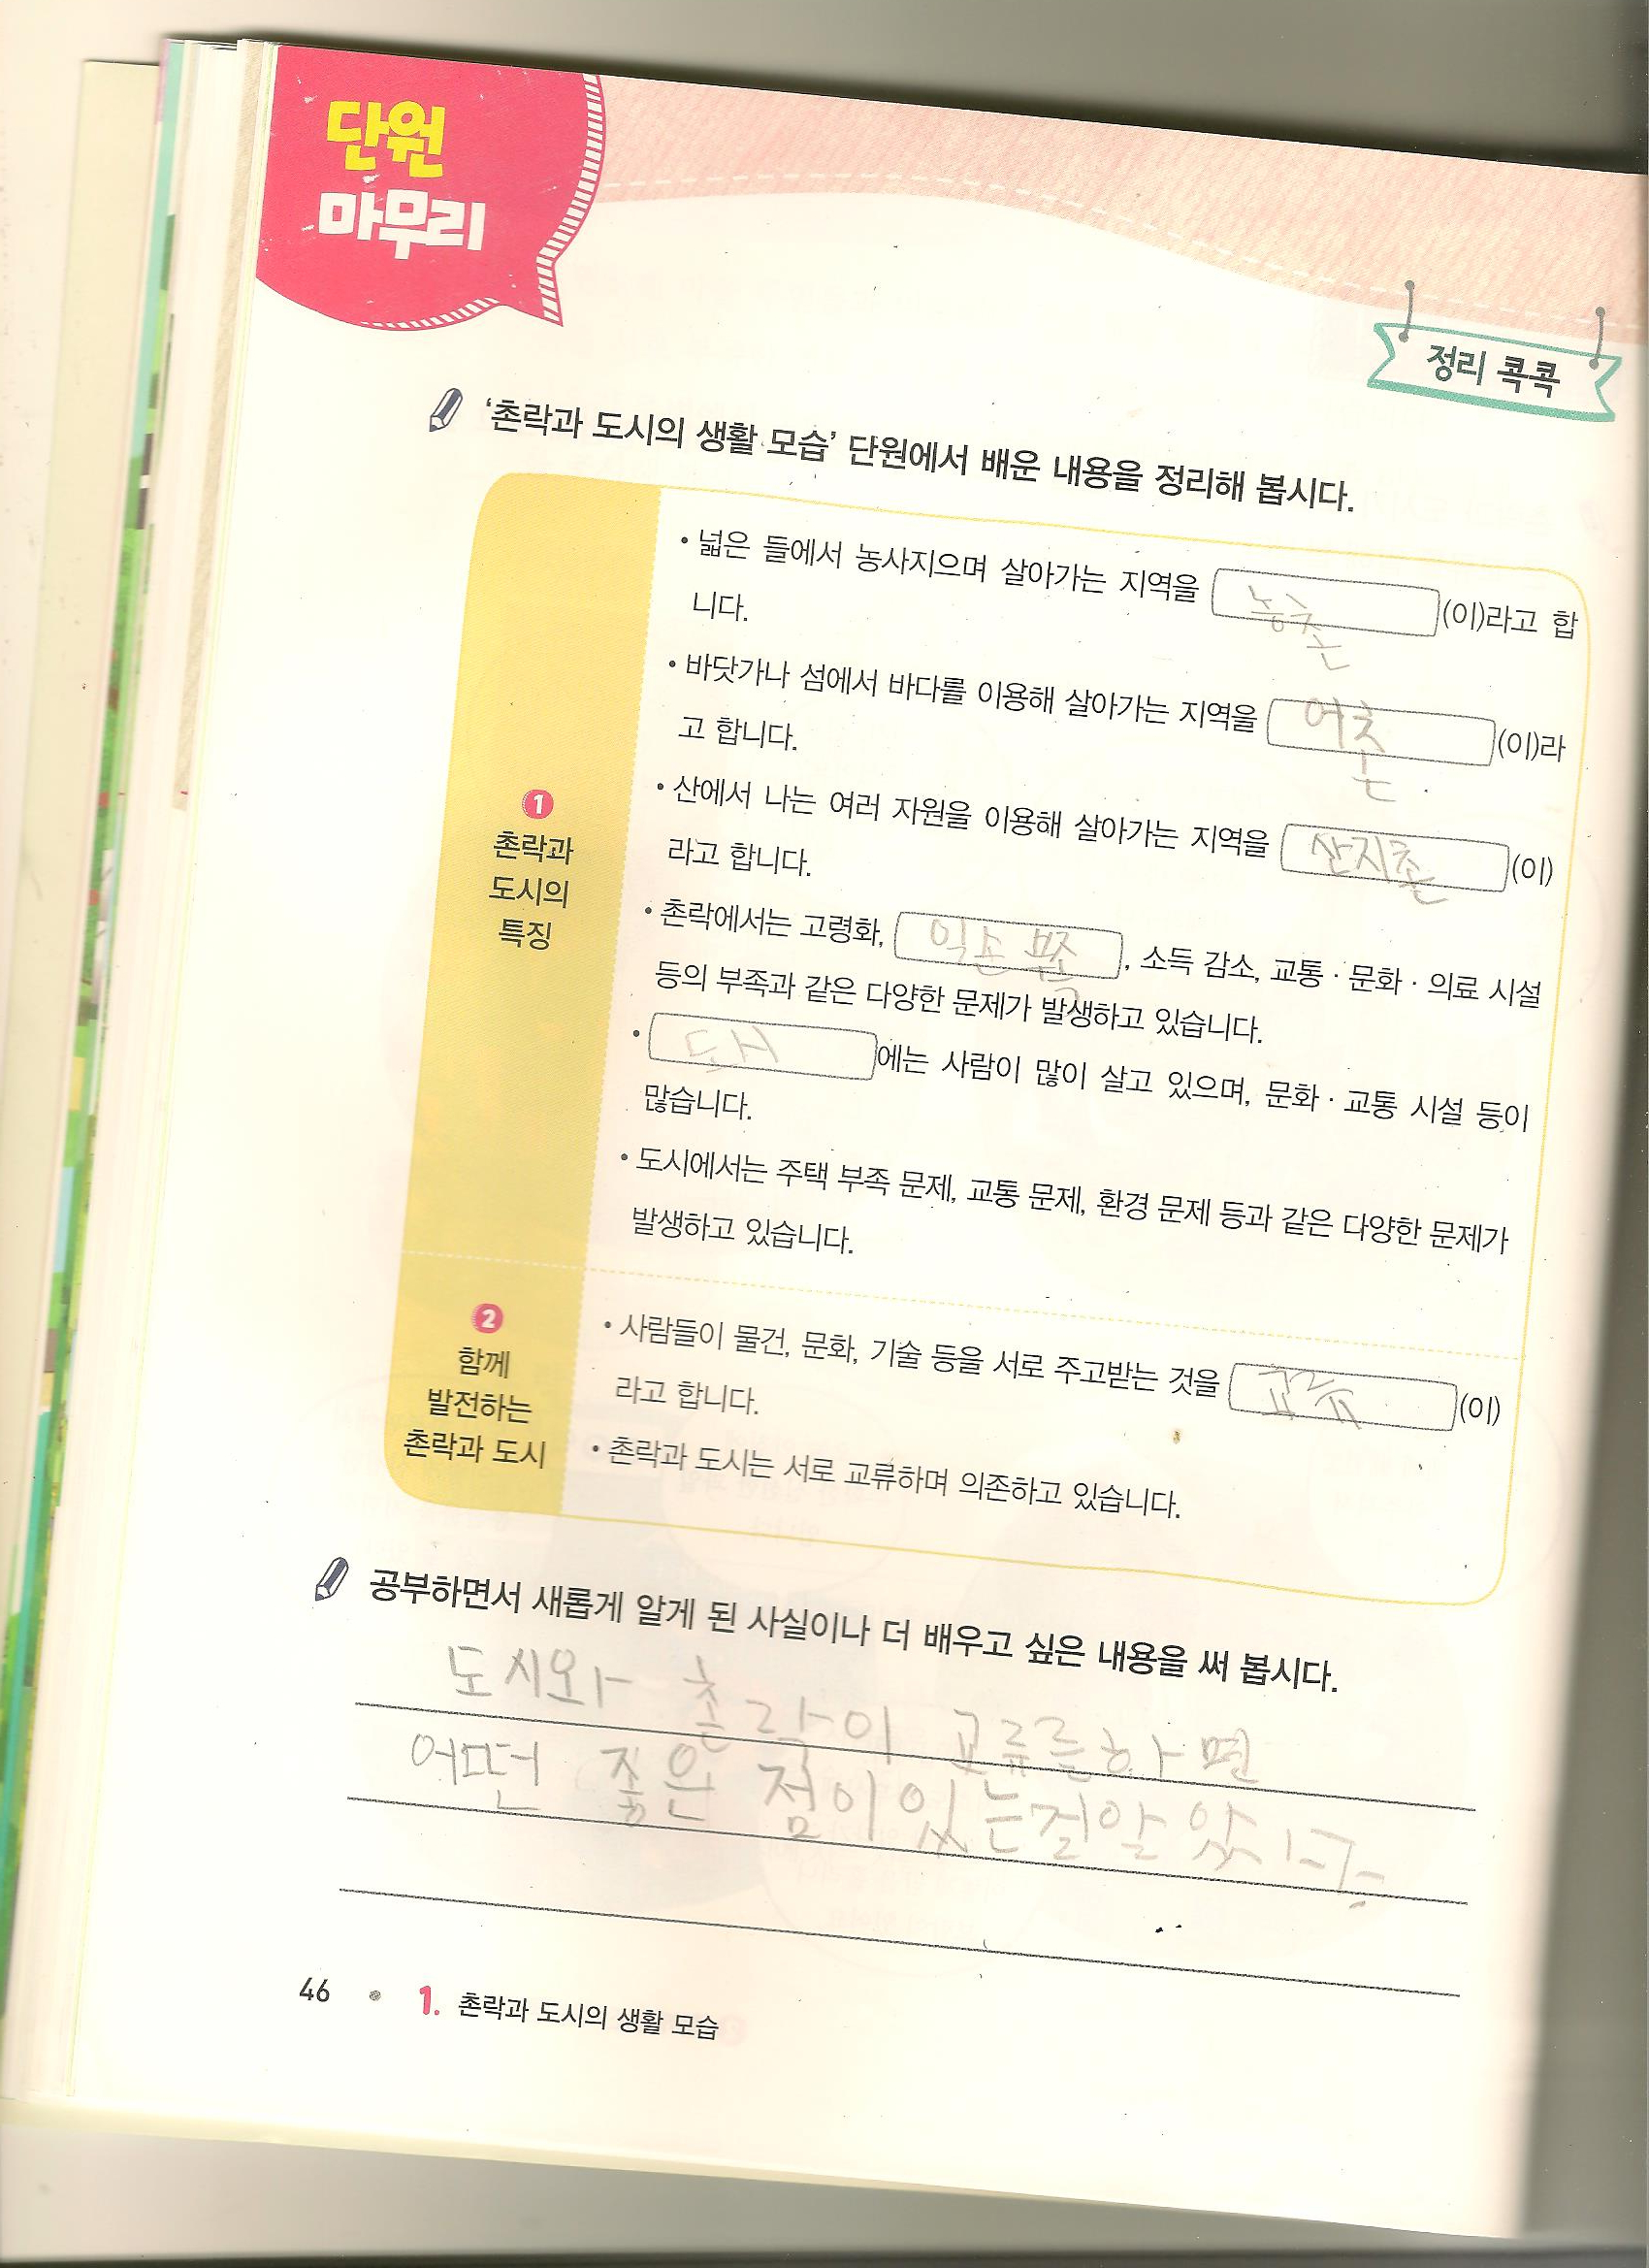 단원
마무리
정리 콕콕
‘촌락과 도시의 생활 모습’ 단원에서 배운 내용을 정리해 봅시다.
1
촌락과
도시의
특징
• 넓은 들에서 농사지으며 살아가는 지역을 농촌 (이)라고 합
니다.
• 바닷가나 섬에서 바다를 이용해 살아가는 지역을 어촌 (이)라
고 합니다.
• 산에서 나는 여러 자원을 이용해 살아가는 지역을 산지촌 (이)
라고 합니다.
• 촌락에서는 고령화, 일손 부족, 소득 감소, 교통·문화·의료 시설
등의 부족과 같은 다양한 문제가 발생하고 있습니다.
• 도시에는 사람이 많이 살고 있으며, 문화·교통 시설 등이
많습니다.
• 도시에서는 주택 부족 문제, 교통 문제, 환경 문제 등과 같은 다양한 문제가
발생하고 있습니다.
2
함께
발전하는
촌락과 도시
• 사람들이 물건, 문화, 기술 등을 서로 주고받는 것을 교류 (이)
라고 합니다.
• 촌락과 도시는 서로 교류하며 의존하고 있습니다.
공부하면서 새롭게 알게 된 사실이나 더 배우고 싶은 내용을 써 봅시다.
도시와 촌락이 교류를하면
어떤 좋은 점이있는질알았
46 • 1. 촌락과 도시의 생활 모습